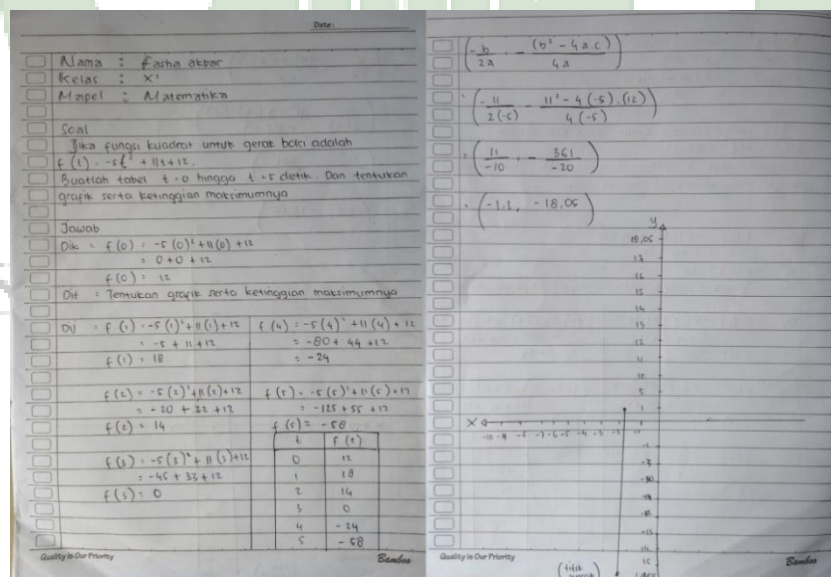 Date:
Nama : Fasha akbar
Kelas : X¹
Mapel : Matematika
Soal
Jika fungsi kuadrat untuk gerak bola adalah
f(t) = -5t² + 11t + 12.
Buatlah tabel t = 0 hingga t = 5 detik. Dan tentukan
grafik serta ketinggian maksimumnya
Jawab
Dik = f(0) = -5(0)² + 11(0) + 12
= 0 + 0 + 12
f(0) = 12
Dit = Tentukan grafik serta ketinggian maksimumnya
Dij = f(1) = -5(1)² + 11(1) + 12
= -5 + 11 + 12
f(1) = 18
f(2) = -5(2)² + 11(2) + 12
= -20 + 22 + 12
f(2) = 14
f(3) = -5(3)² + 11(3) + 12
= -45 + 33 + 12
f(3) = 0
f(4) = -5(4)² + 11(4) + 12
= -80 + 44 + 12
= -24
f(5) = -5(5)² + 11(5) + 12
= -125 + 55 + 12
f(5) = -58
t f(t)
0 12
1 18
2 14
3 0
4 -24
5 -58
Quality is Our Priority
Bamboo
(-b/2a, -(b² - 4ac)/4a)
= (-11/2(-5), -11² - 4(-5).(12)/4(-5))
= (11/-10, -361/-20)
= (-1.1, -18,05)
y
18,05
17
16
15
14
13
12
11
10
5
1
X
Quality is Our Priority
Bamboo